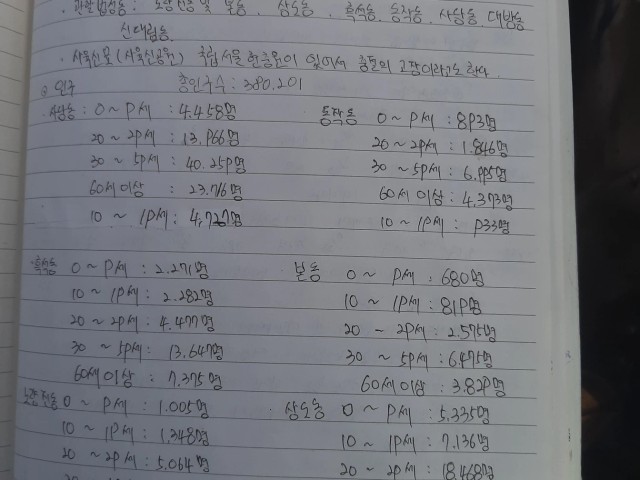 관할법정동 : 노량진동 및 본동, 상도동, 흑석동, 동작동, 사당동, 대방동
신대방동
· 사육신묘(사육신공원) 국립서울현충원이 있어서 충절의 고장이라고도 한다
인구 총인구수 : 380.201
사당동 : 0 ~ 9세 : 4.458명
20 ~ 29세 : 13.966명
30 ~ 59세 : 40.259명
60세 이상 : 23.716명
10 ~ 19세 : 4,727명
동작동 0 ~ 9세 : 893명
20 ~ 29세 : 1.846명
30 ~ 59세 : 6.995명
60세 이상 : 4.373명
10 ~ 19세 : 933명
흑석동 0 ~ 9세 : 2.271명
10 ~ 19세 : 2.282명
20 ~ 29세 : 4.477명
30 ~ 59세 : 13.647명
60세 이상 : 7.375명
본동 0 ~ 9세 : 680명
10 ~ 19세 : 819명
20 ~ 29세 : 2.575명
30 ~ 59세 : 6475명
60세 이상 : 3.829명
노량진동 0 ~ 9세 : 1.005명
10 ~ 19세 : 1,348명
20 ~ 29세 : 5.064명
상도동 0 ~ 9세 : 5.335명
10 ~ 19세 : 7.136명
20 ~ 29세 : 18.468명